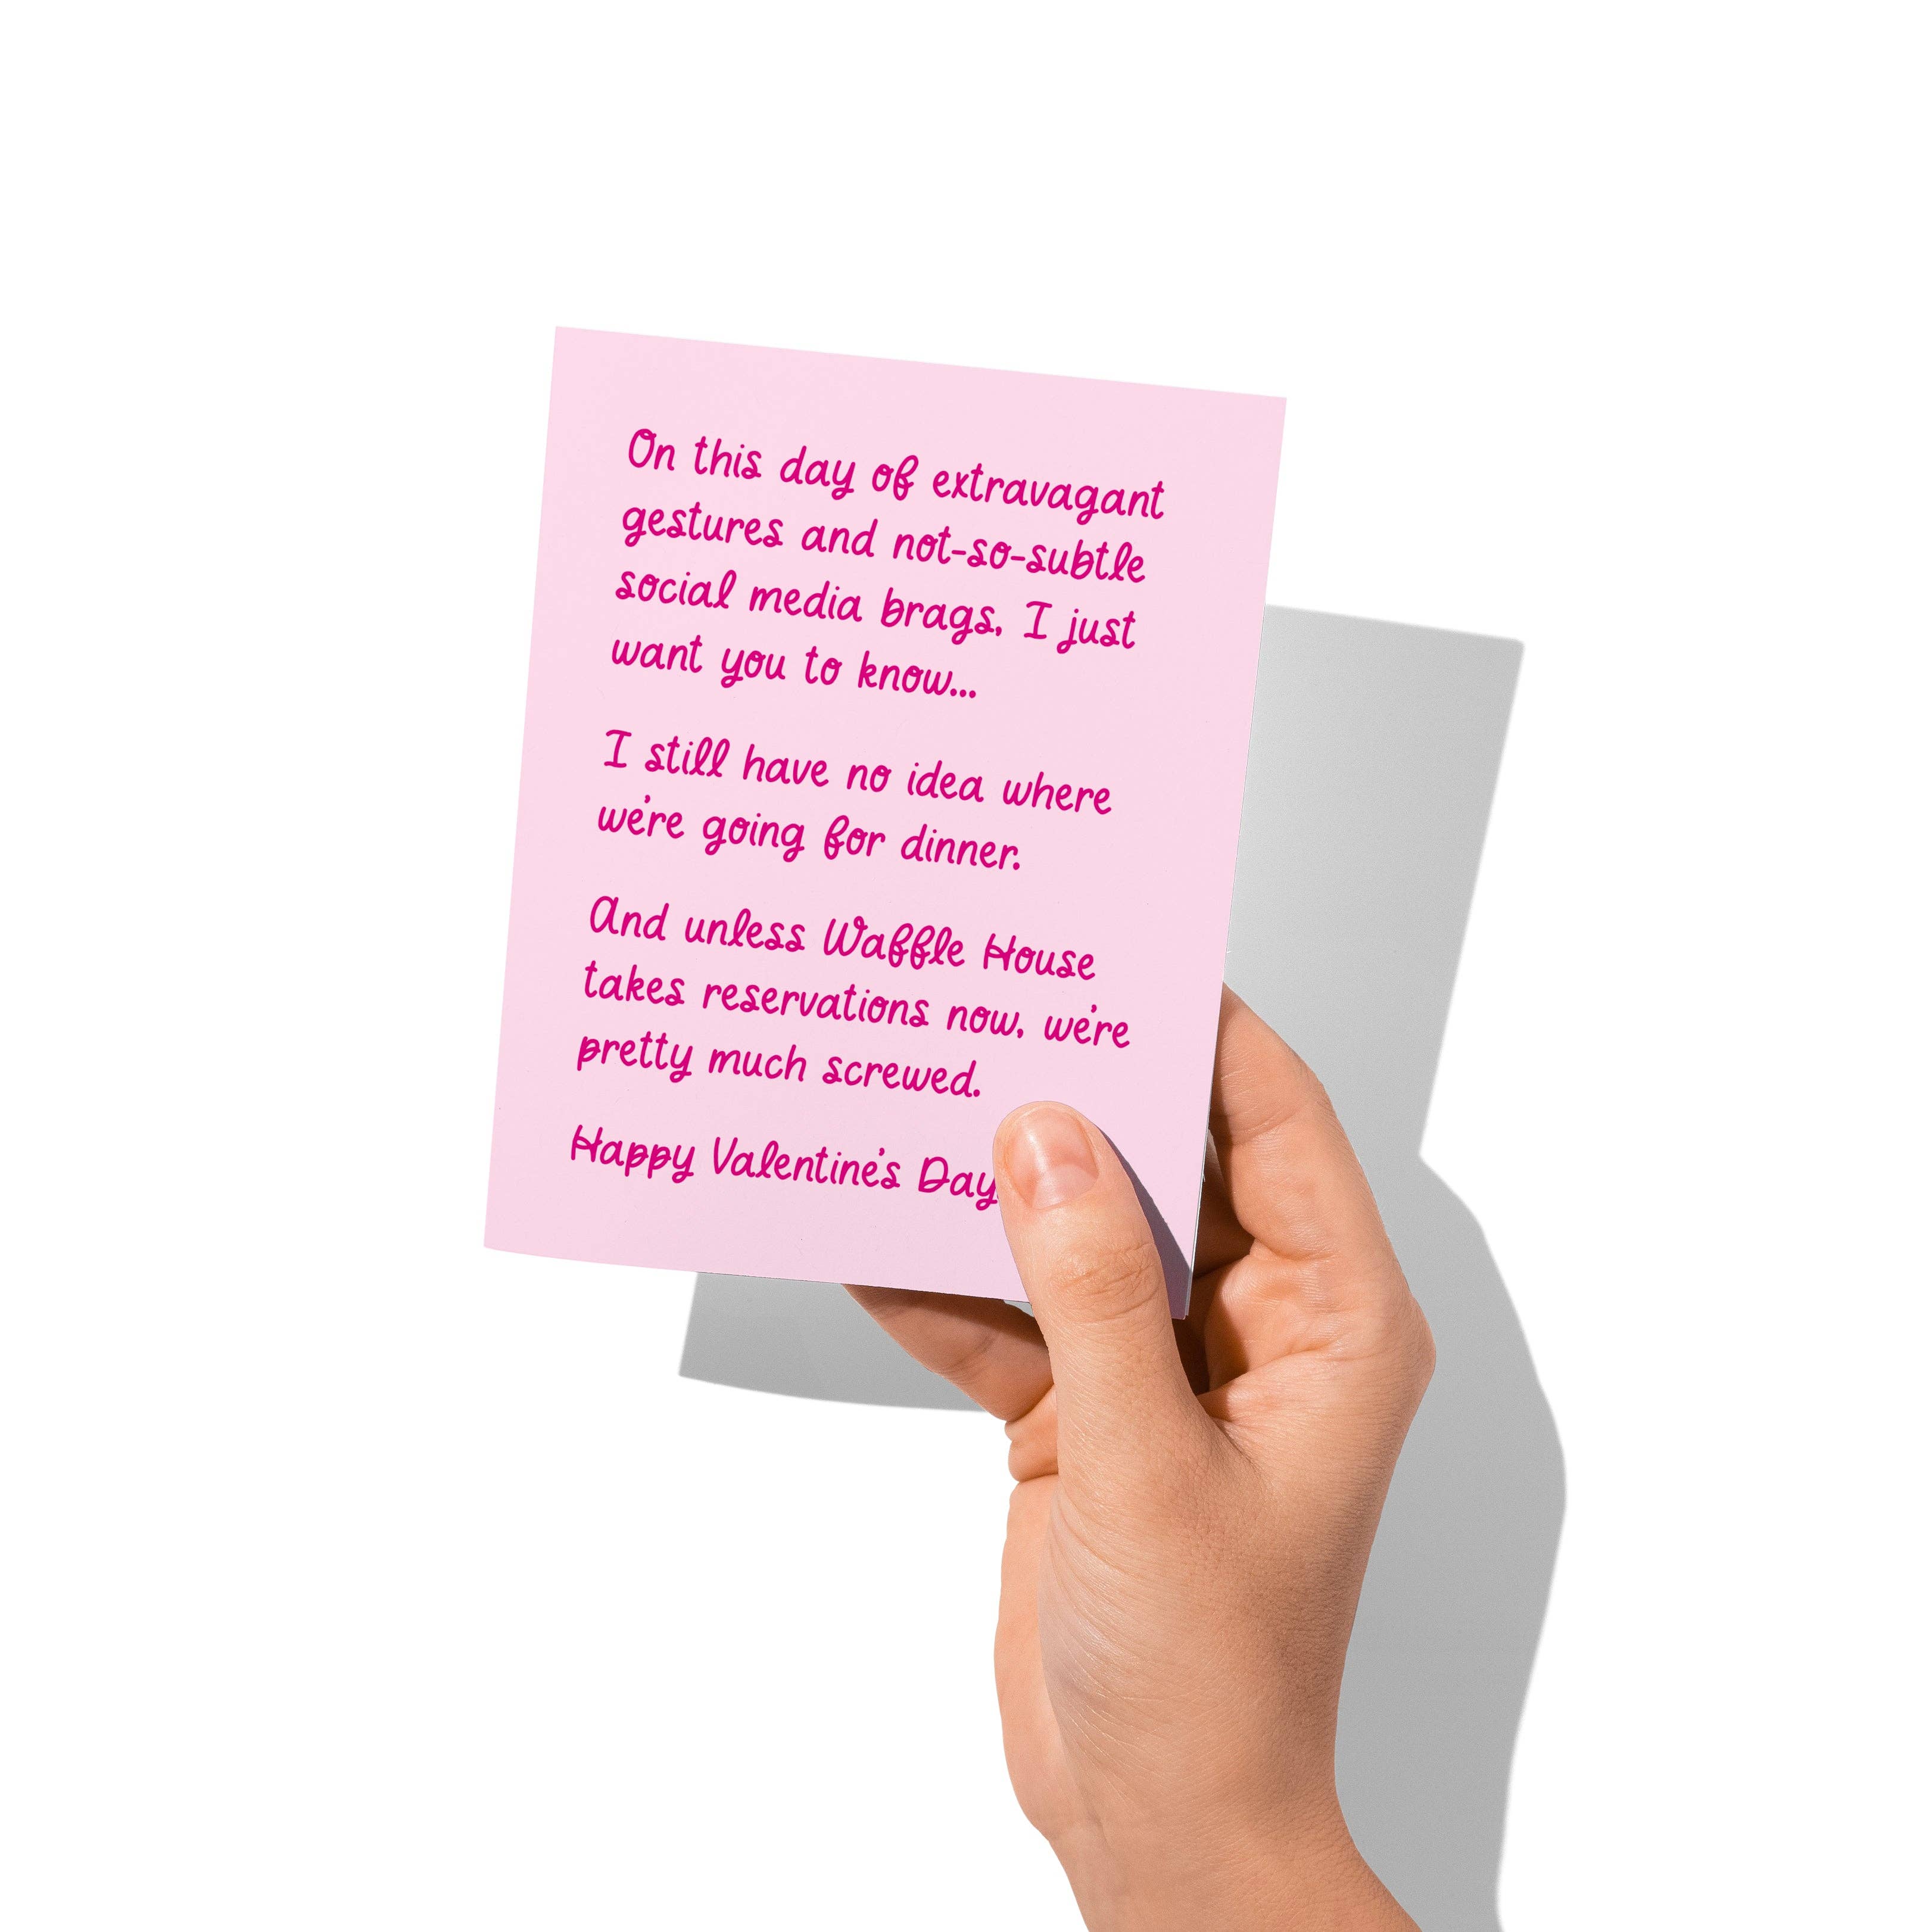 On this day of extravagant
gestures and not-so-subtle
social media brags, I just
want you to know...
I still have no idea where
we're going for dinner.
And unless Waffle House
takes reservations now, we're
pretty much screwed.
Happy Valentine's Day